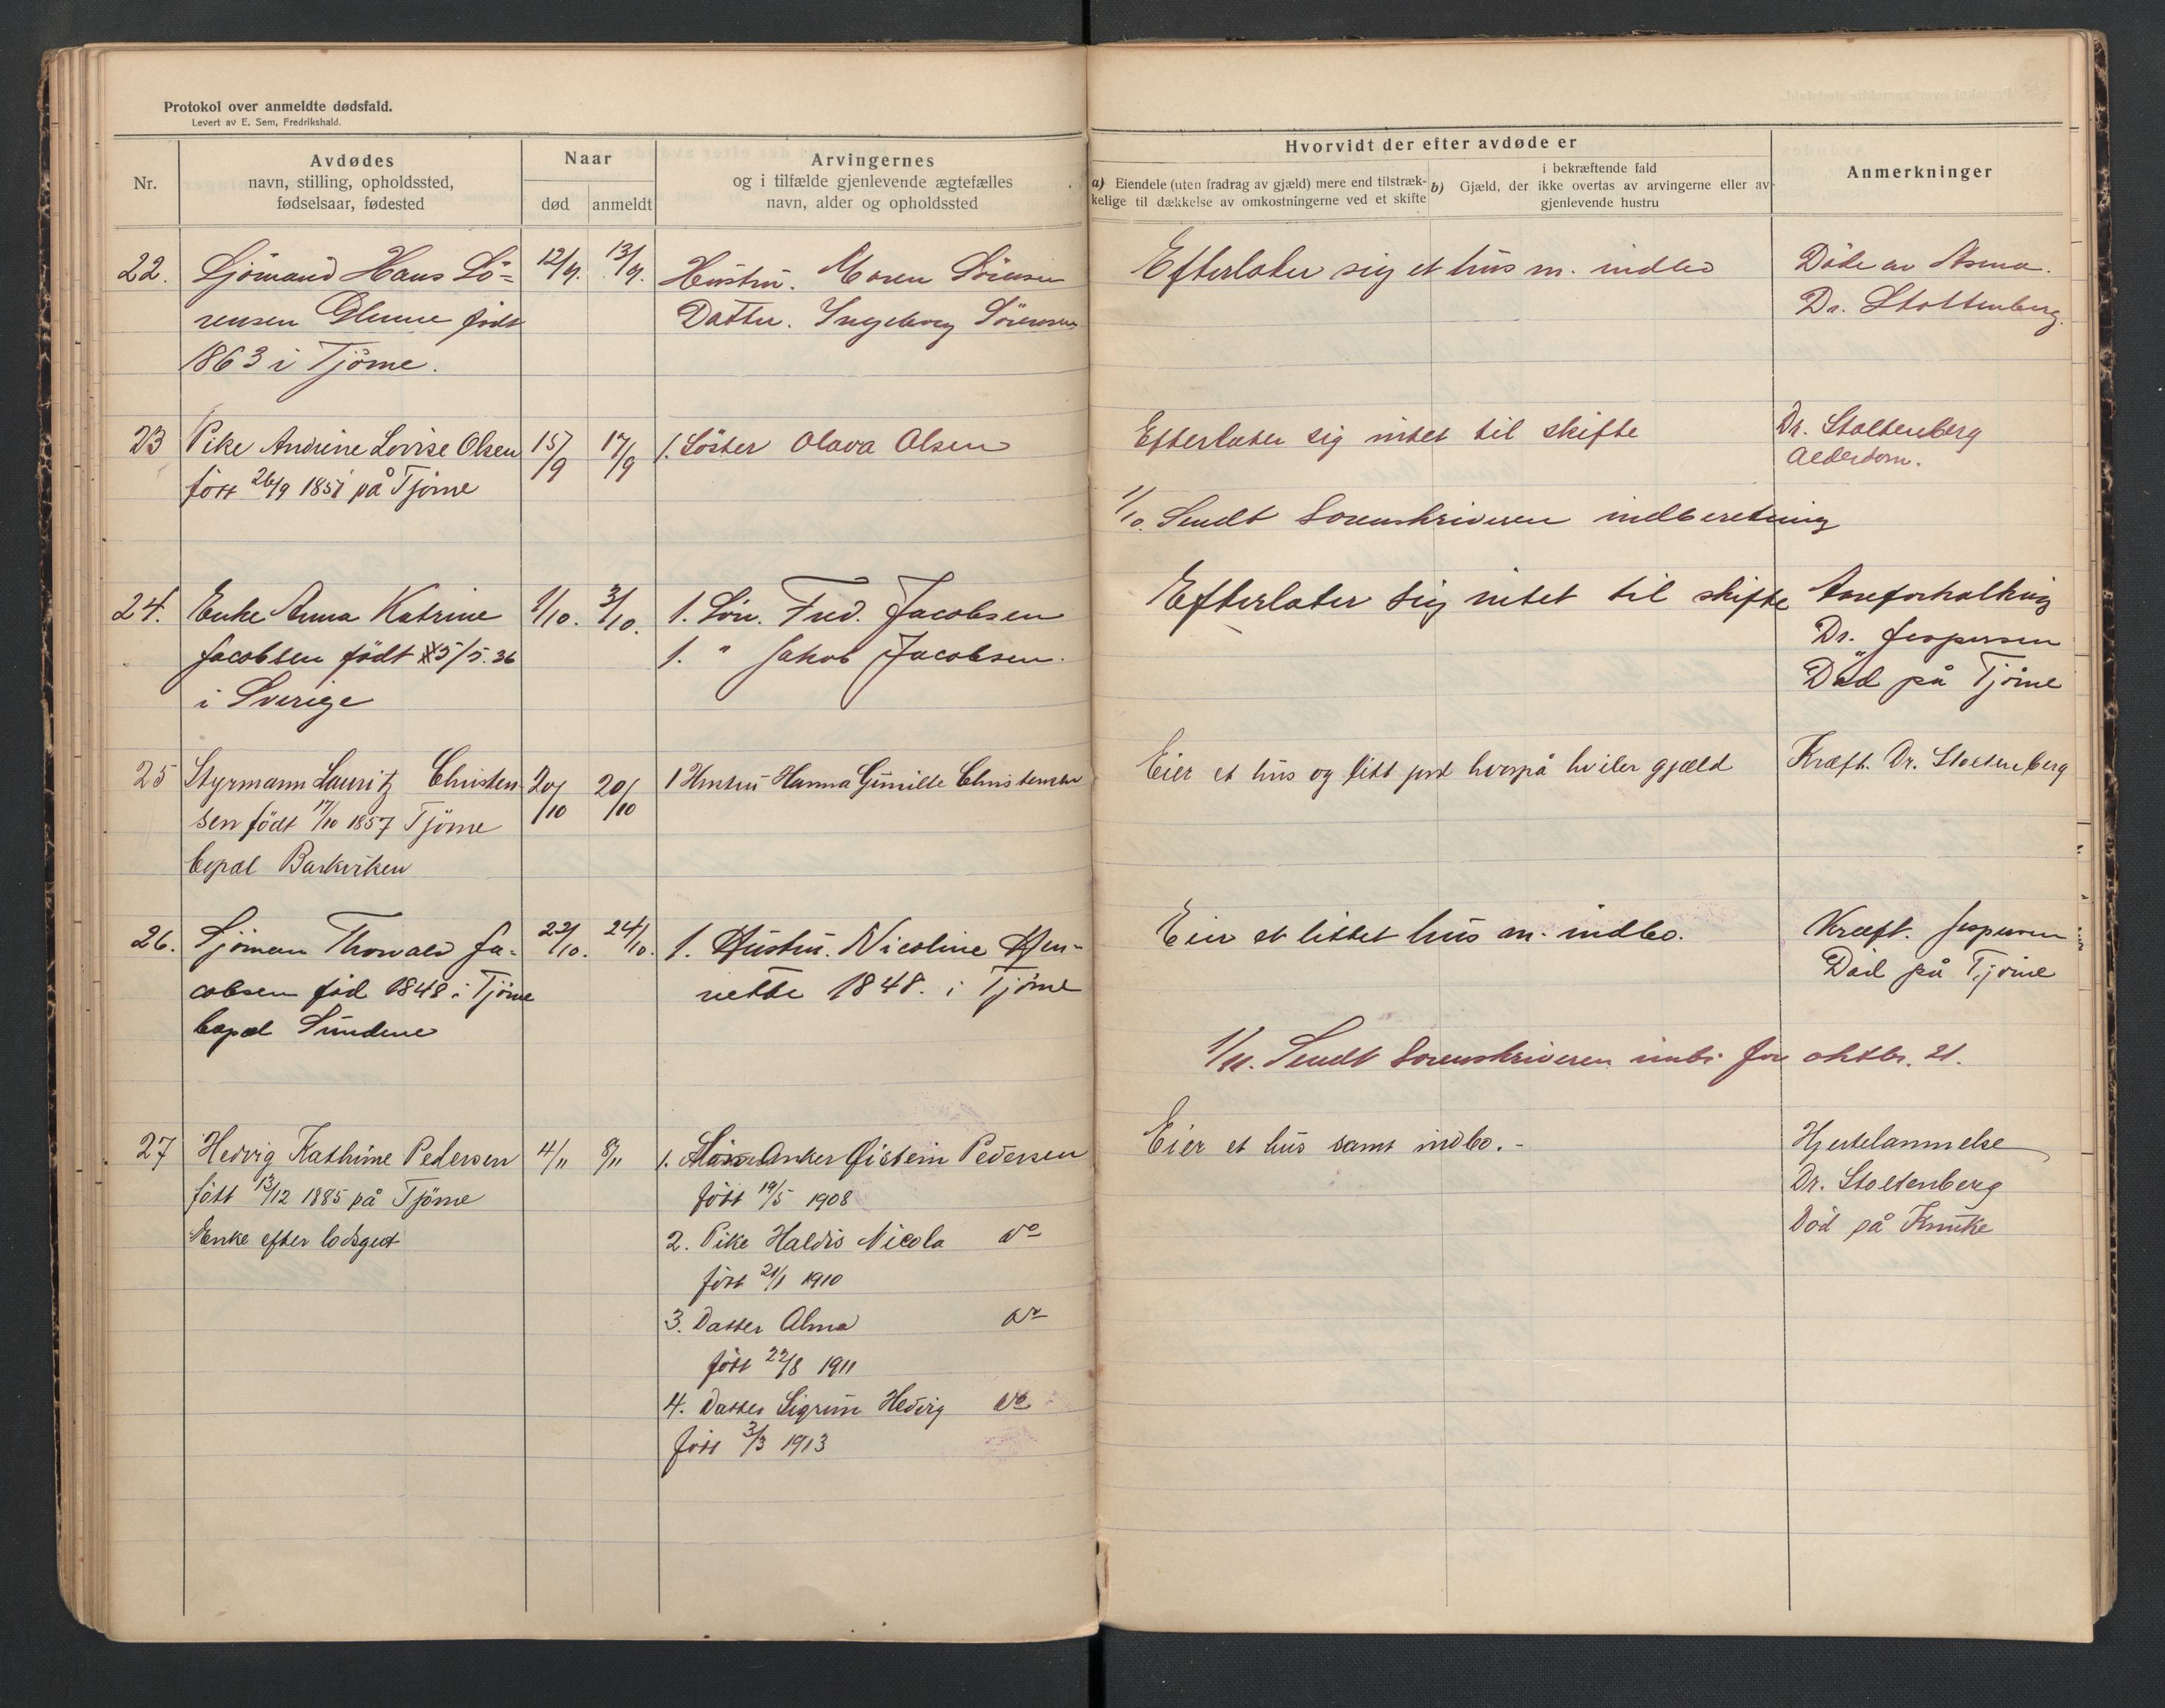 Protokol over anmeldte dødsfald.
Levert av E. Sem, Fredrikshald.
Nr.
Avdødes
navn, stilling, opholdssted,
fødselsaar, fødested
Naar
død
anmeldt
Arvingernes
og i tilfælde gjenlevende ægtefælles
navn, alder og opholdssted
Hvorvidt der efter avdøde er
a) Eiendele (uten fradrag av gjæld) mere end tilstræk-
kelige til dækkelse av omkostningerne ved et skifte
i bekræftende fald
b) Gjæld, der ikke overtas av arvingerne eller av
gjenlevende hustru
Anmerkninger
22. Sjömand Hans Sö- 12/9. 13/9. Hustru. Maren Sörensen Efterlater sig et hus m. indbo Döde av Asma.
rensen Glenne född Datter. Ingeborg Sörensen Dr. Stoltenberg.
1863 i Tjöme.
23 Pike Andrine Lovise Olsen 15/9 17/9 1. Söster Olava Olsen Efterlater sig intet til skifte Dr. Stoltenberg
född 26/9 1851 på Tjöme Alderdom.
1/10. Sendt Sorenskriveren indberetning
24. Enke Anna Katrine 1/10. 3/10. 1. Sön. Fred. Jacobsen Efterlater sig intet til skifte Aareforkalkning
Jacobsen födt 5/5.36 1. " Jakob Jacobsen. Dr. Jespersen
i Sverige Död på Tjöme
25 Styrmann Lauritz Christen- 20/10 20/10 1 Hustru Hanna Gunilde Christensen Eier et hus og litt jord hvorpå hviler gjæld Kræft. Dr. Stoltenberg
sen födt 17/10 1857 Tjöme
bopæl Barkviken
26. Sjöman Thorvald Ja- 22/10. 24/10. 1. Hustru. Nicoline Hen- Eier et littet hus m. indbo. Kræft. Jespersen
cobsen föd 1848 i Tjöme riette 1848. i Tjöme Död på Tjöme
bopæl Sundene
1/11. Sendt Sorenskriveren innb. for oktbr. 21.
27 Hedvig Kathrine Pedersen 4/11 8/11 1. Sön Anker Øistein Pedersen Eier et hus samt indbo. - Hjertelammelse
född 13/12 1885 på Tjöme född 19/5 1908 Dr. Stoltenberg
Enke efter lodsgut 2. Pike Haldis Nicola do Död på Knuke
född 21/1 1910
3. Datter Alma do
född 22/8 1911
4. Datter Sigrun Hedvig do
född 3/3 1913